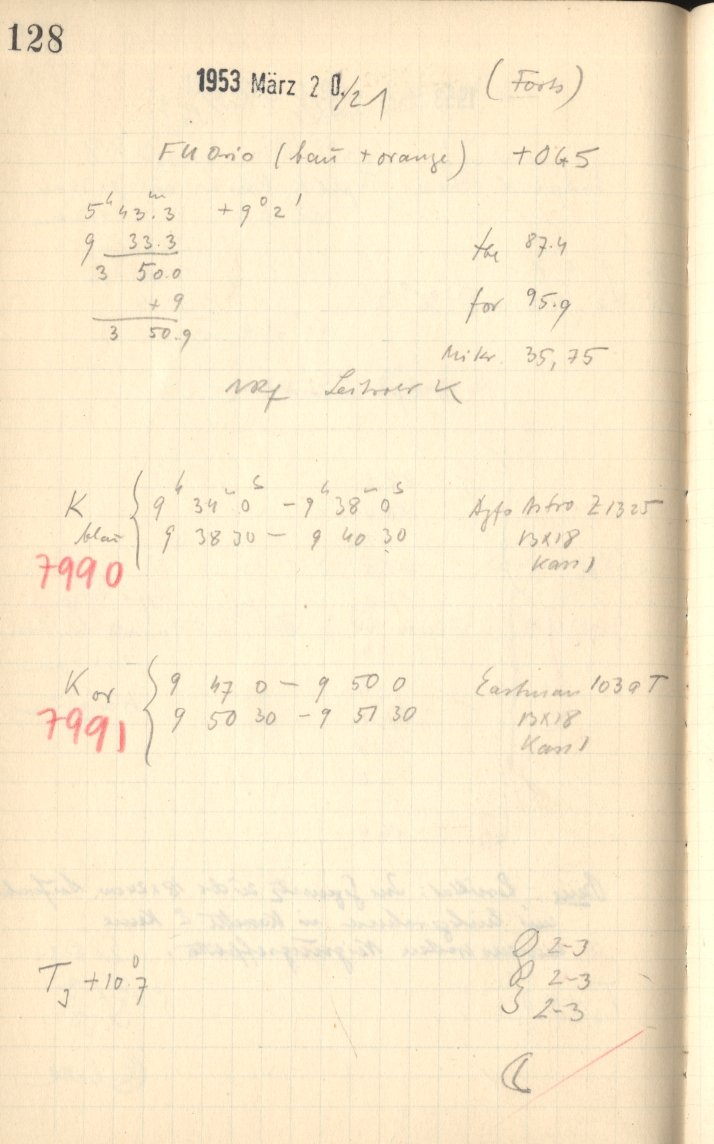 128
1953 März 20./21 (Forts)
FU Orio (blau + orange) +045
5ʰ 43ᵐ.3 +9° 2'
9 33.3
3 50.0
+9
3 50.9
87.4
for 95.9
Mikr. 35,75
K
K blau
9ʰ 34ᵐ 0ˢ – 9ʰ 38ᵐ 0ˢ Agfa Astro Z1325
9 38 30 – 9 40 30 13x18
Kass 1
7990
K or
9 47 0 – 9 50 0 Eastman 103aT
9 50 30 – 9 51 30 13x18
Kass 1
7991
2-3
T₃ +10°.7
2-3
2-3